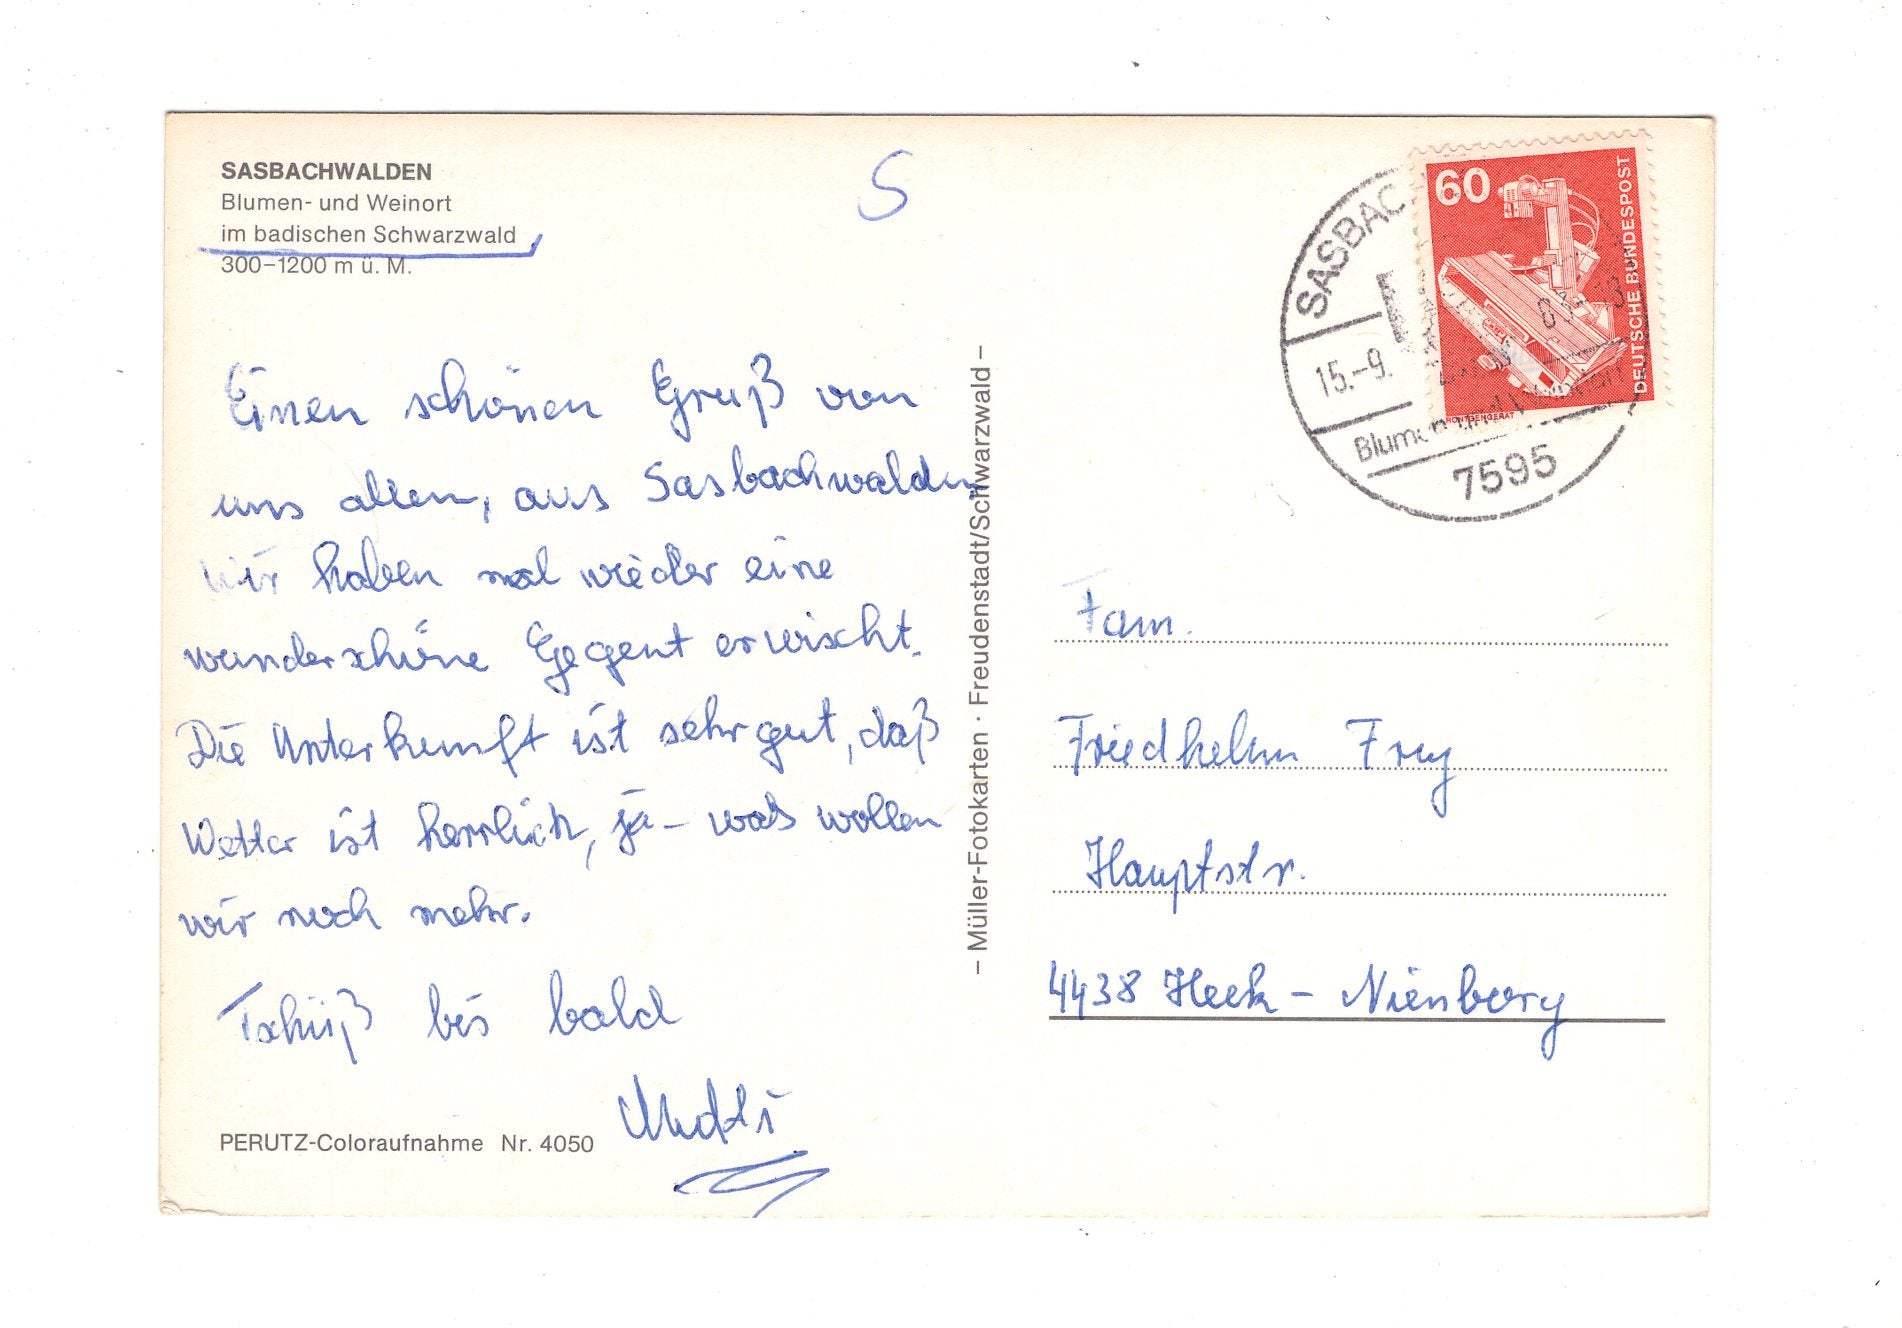 SASBACHWALDEN
Blumen- und Weinort
im badischen Schwarzwald
300–1200 m ü. M.
S
Einen schönen Gruß von
uns allen, aus Sasbachwalden
Wir haben mal wieder eine
wunderschöne Gegent erwischt.
Die Unterkunft ist sehr gut, daß
Wetter ist herrlich, ja – was wollen
wir noch mehr.
Tschüß bis bald
PERUTZ-Coloraufnahme Nr. 4050
– Müller-Fotokarten · Freudenstadt/Schwarzwald –
60
DEUTSCHE BUNDESPOST
RÖNTGENGERÄT
SASBAC
15.-9.
7595
Fam.
Friedhelm Frey
Hauptstr.
4438 Heek – Nienborg